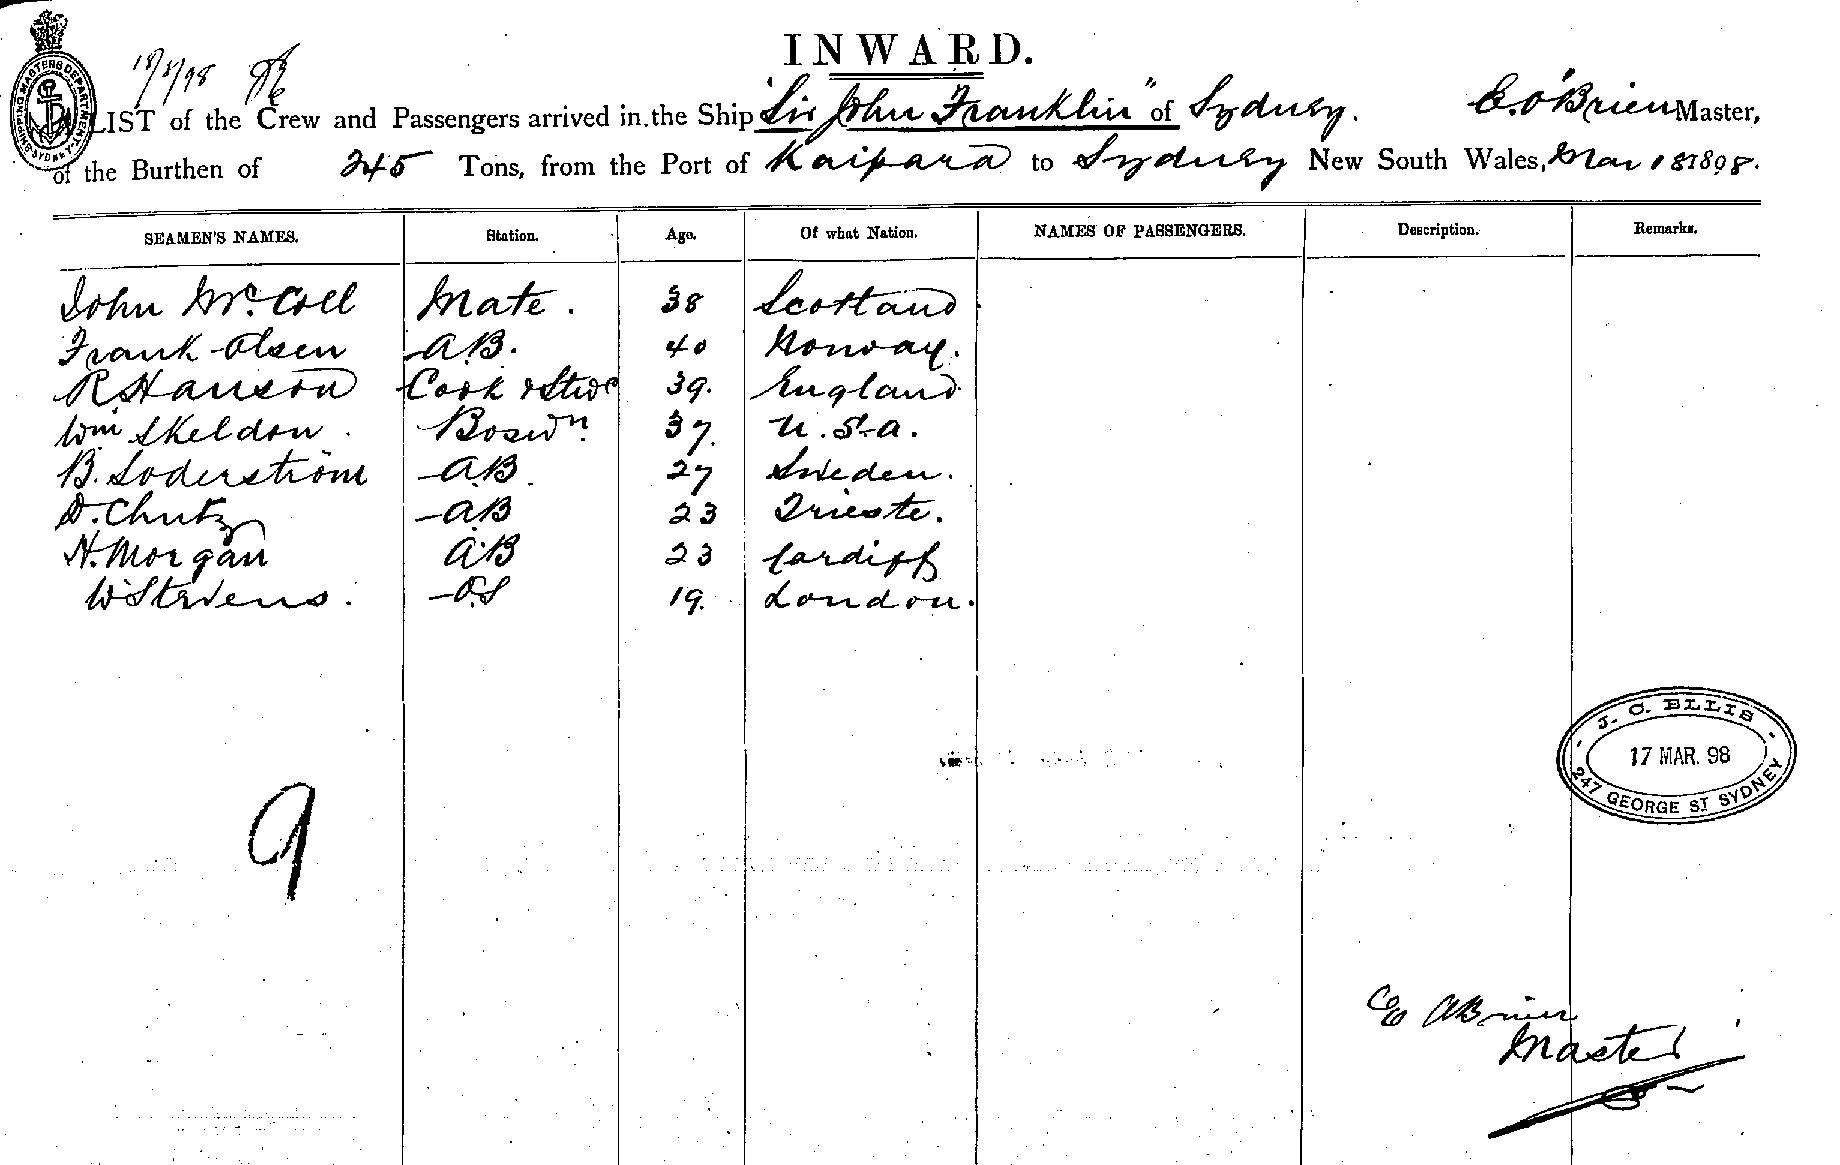 INWARD.
SHIPPING MASTERS DEPARTMENT SYDNEY
18/3/98
LIST of the Crew and Passengers arrived in the Ship "Sir John Franklin" of Sydney. E. O'Brien Master,
of the Burthen of 245 Tons, from the Port of Kaipara to Sydney New South Wales, Mar 18 1898.
SEAMEN'S NAMES. Station. Age. Of what Nation. NAMES OF PASSENGERS. Description. Remarks.
John McColl Mate. 38 Scotland
Frank Olsen A.B. 40 Norway.
R Hanson Cook & Stwd 39. England
Wm Skeldon. Boswn. 37. U.S.A.
B. Soderström A.B. 27 Sweden.
D. Chutz A.B 23 Trieste.
H. Morgan A.B 23 Cardiff
W Stevens. O.S 19. London.
J. C. ELLIS
17 MAR. 98
247 GEORGE ST SYDNEY
9
E O'Brien
Master